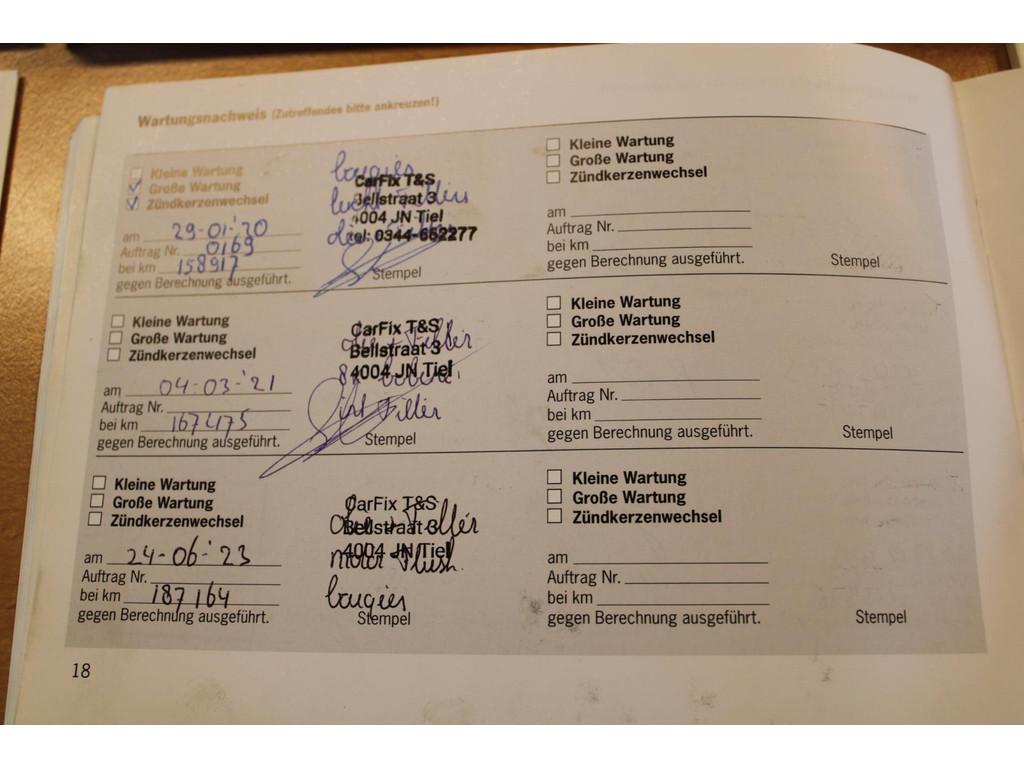 Wartungsnachweis (Zutreffendes bitte ankreuzen!)
Kleine Wartung
Große Wartung
Zündkerzenwechsel
am 29-01-'20
Auftrag Nr. 0169
bei km 158917
gegen Berechnung ausgeführt.
bougies
CarFix T&S
Bellstraat 3
4004 JN Tiel
tel: 0344-652277
Stempel
Kleine Wartung
Große Wartung
Zündkerzenwechsel
am 04-03-'21
Auftrag Nr.
bei km 167475
gegen Berechnung ausgeführt.
CarFix T&S
olie + Filter
Bellstraat 3
4004 JN Tiel
Filter
Stempel
Kleine Wartung
Große Wartung
Zündkerzenwechsel
am 24-06-'23
Auftrag Nr.
bei km 187164
gegen Berechnung ausgeführt.
CarFix T&S
Olie + Filter
Bellstraat 3
4004 JN Tiel
motor Flush.
bougies
Stempel
Kleine Wartung
Große Wartung
Zündkerzenwechsel
am
Auftrag Nr.
bei km
gegen Berechnung ausgeführt.
Stempel
Kleine Wartung
Große Wartung
Zündkerzenwechsel
am
Auftrag Nr.
bei km
gegen Berechnung ausgeführt.
Stempel
Kleine Wartung
Große Wartung
Zündkerzenwechsel
am
Auftrag Nr.
bei km
gegen Berechnung ausgeführt.
Stempel
18